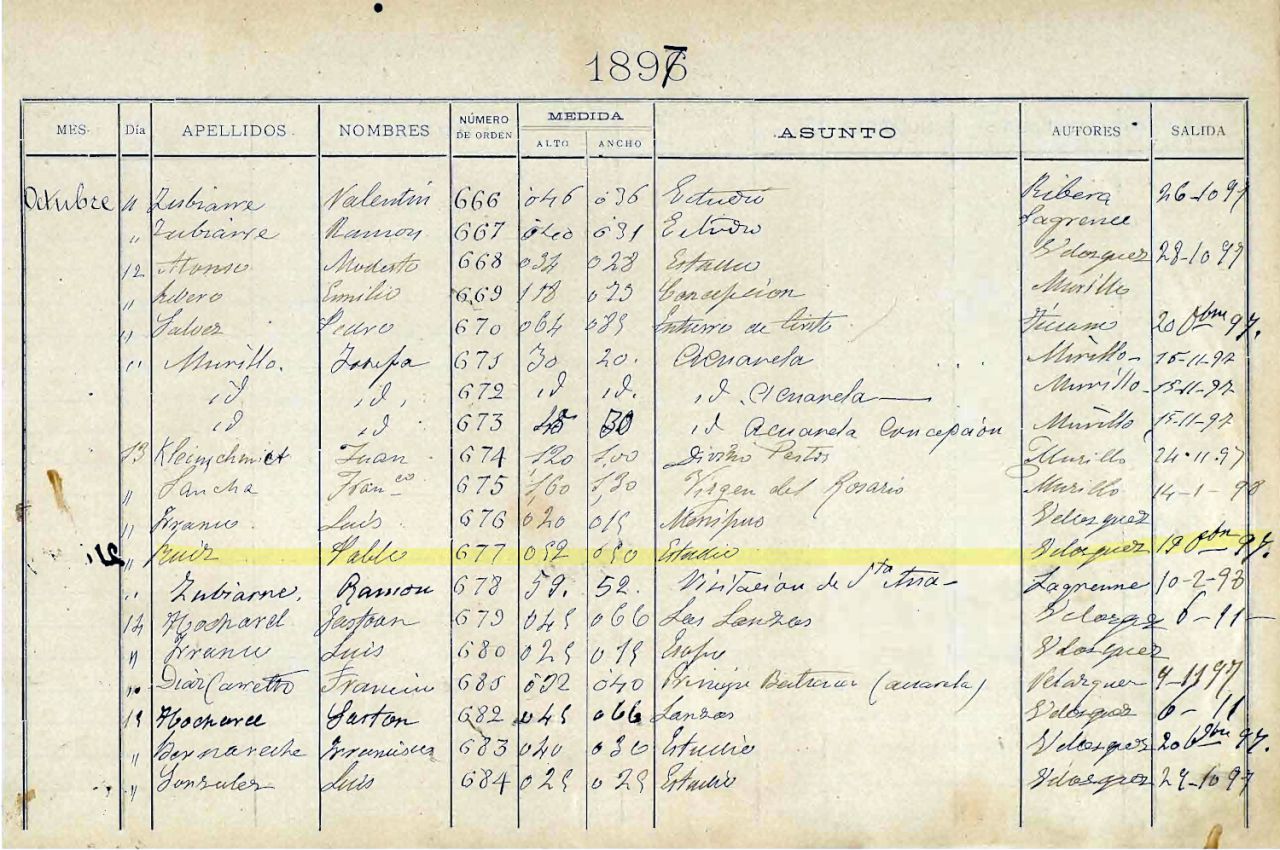 1897
MES- Día APELLIDOS NOMBRES NÚMERO DE ORDEN MEDIDA ALTO ANCHO ASUNTO AUTORES SALIDA
Octubre 11 Zubiarre Valentín 666 046 036 Estudio Ribera 26-10 97
" Zubiarre Ramon 667 040 031 Estudio Lagrenee
12 Alonso Modesto 668 034 028 Estudio Velasquez 28-10 97
" Ribero Emilio 669 118 073 Concepcion Murillo
" Galvez Pedro 670 064 085 Entierro de Cristo Ticiano 20 8bre 97.
" Murillo. Josefa 671 30 20. Acuarela Murillo- 15-11-97
id id 672 id id. id. Acuarela Murillo- 15-11-97
id id 673 45 30 id Acuarela Concepción Murillo 15-11-97
13 Kleinschmidt Juan 674 120 100 Divino Pastor Murillo 24-11-97
" Sancha Franco 675 160 130 Virgen del Rosario Murillo 14-1-98
" Franco Luis 676 020 015 Menipuo Velasquez
" Ruiz Pablo 677 052 050 Estudio Velasquez 19 8bre 97.
" Zubiarre. Ramon 678 59. 52. Visitación de Sta Ana- Lagrenne 10-2-98
14 Hocharel Gaston 679 045 066 Las Lanzas Velasquez 6-11-
" Franco Luis 680 025 015 Esopo Velasquez
" Diaz Carretto Francisco 681 052 040 Principe Baltasar (acuarela) Velazquez 9-11 97
15 Hocharel Gaston 682 045 066 Lanzas Velasquez 6-11
" Bernareche Francisca 683 040 030 Estudio Velasquez 20 8bre 97.
" Gonzalez Luis 684 025 025 Estudio Velasquez 29-10 97